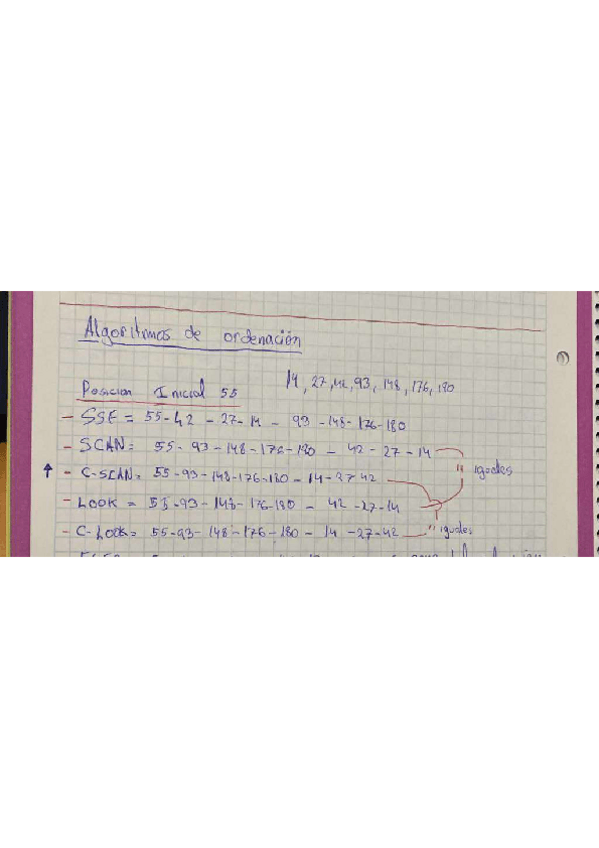 Algoritmos de ordenación
Posicion Inicial 55
14, 27, 42, 93, 148, 176, 180
- SSF = 55-42 - 27-14 - 93 - 148-176-180
- SCAN: 55- 93-148-176-180 - 42 - 27 - 14
" iguales
- C-SCAN= 55-93-148-176-180 - 14-27 42
- LOOK = 55-93- 148-176-180 - 42 -27-14
- C-LOOK= 55-93- 148-176 - 180 - 14 -27-42
" iguales